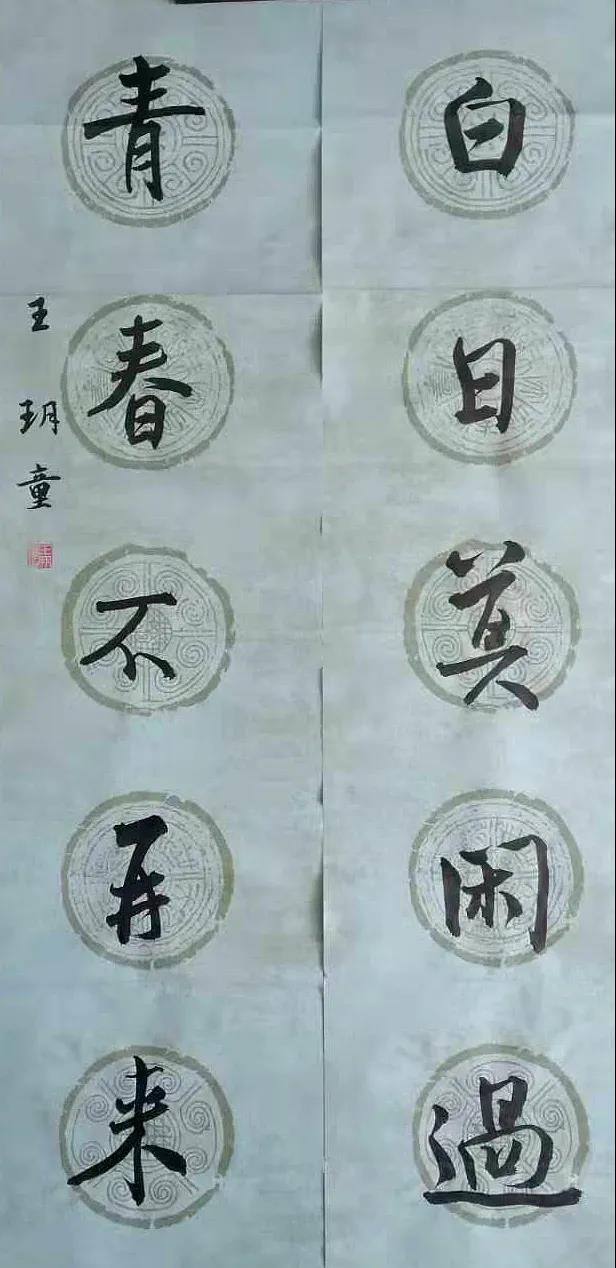 白日莫闲過
青春不再来
王玥童